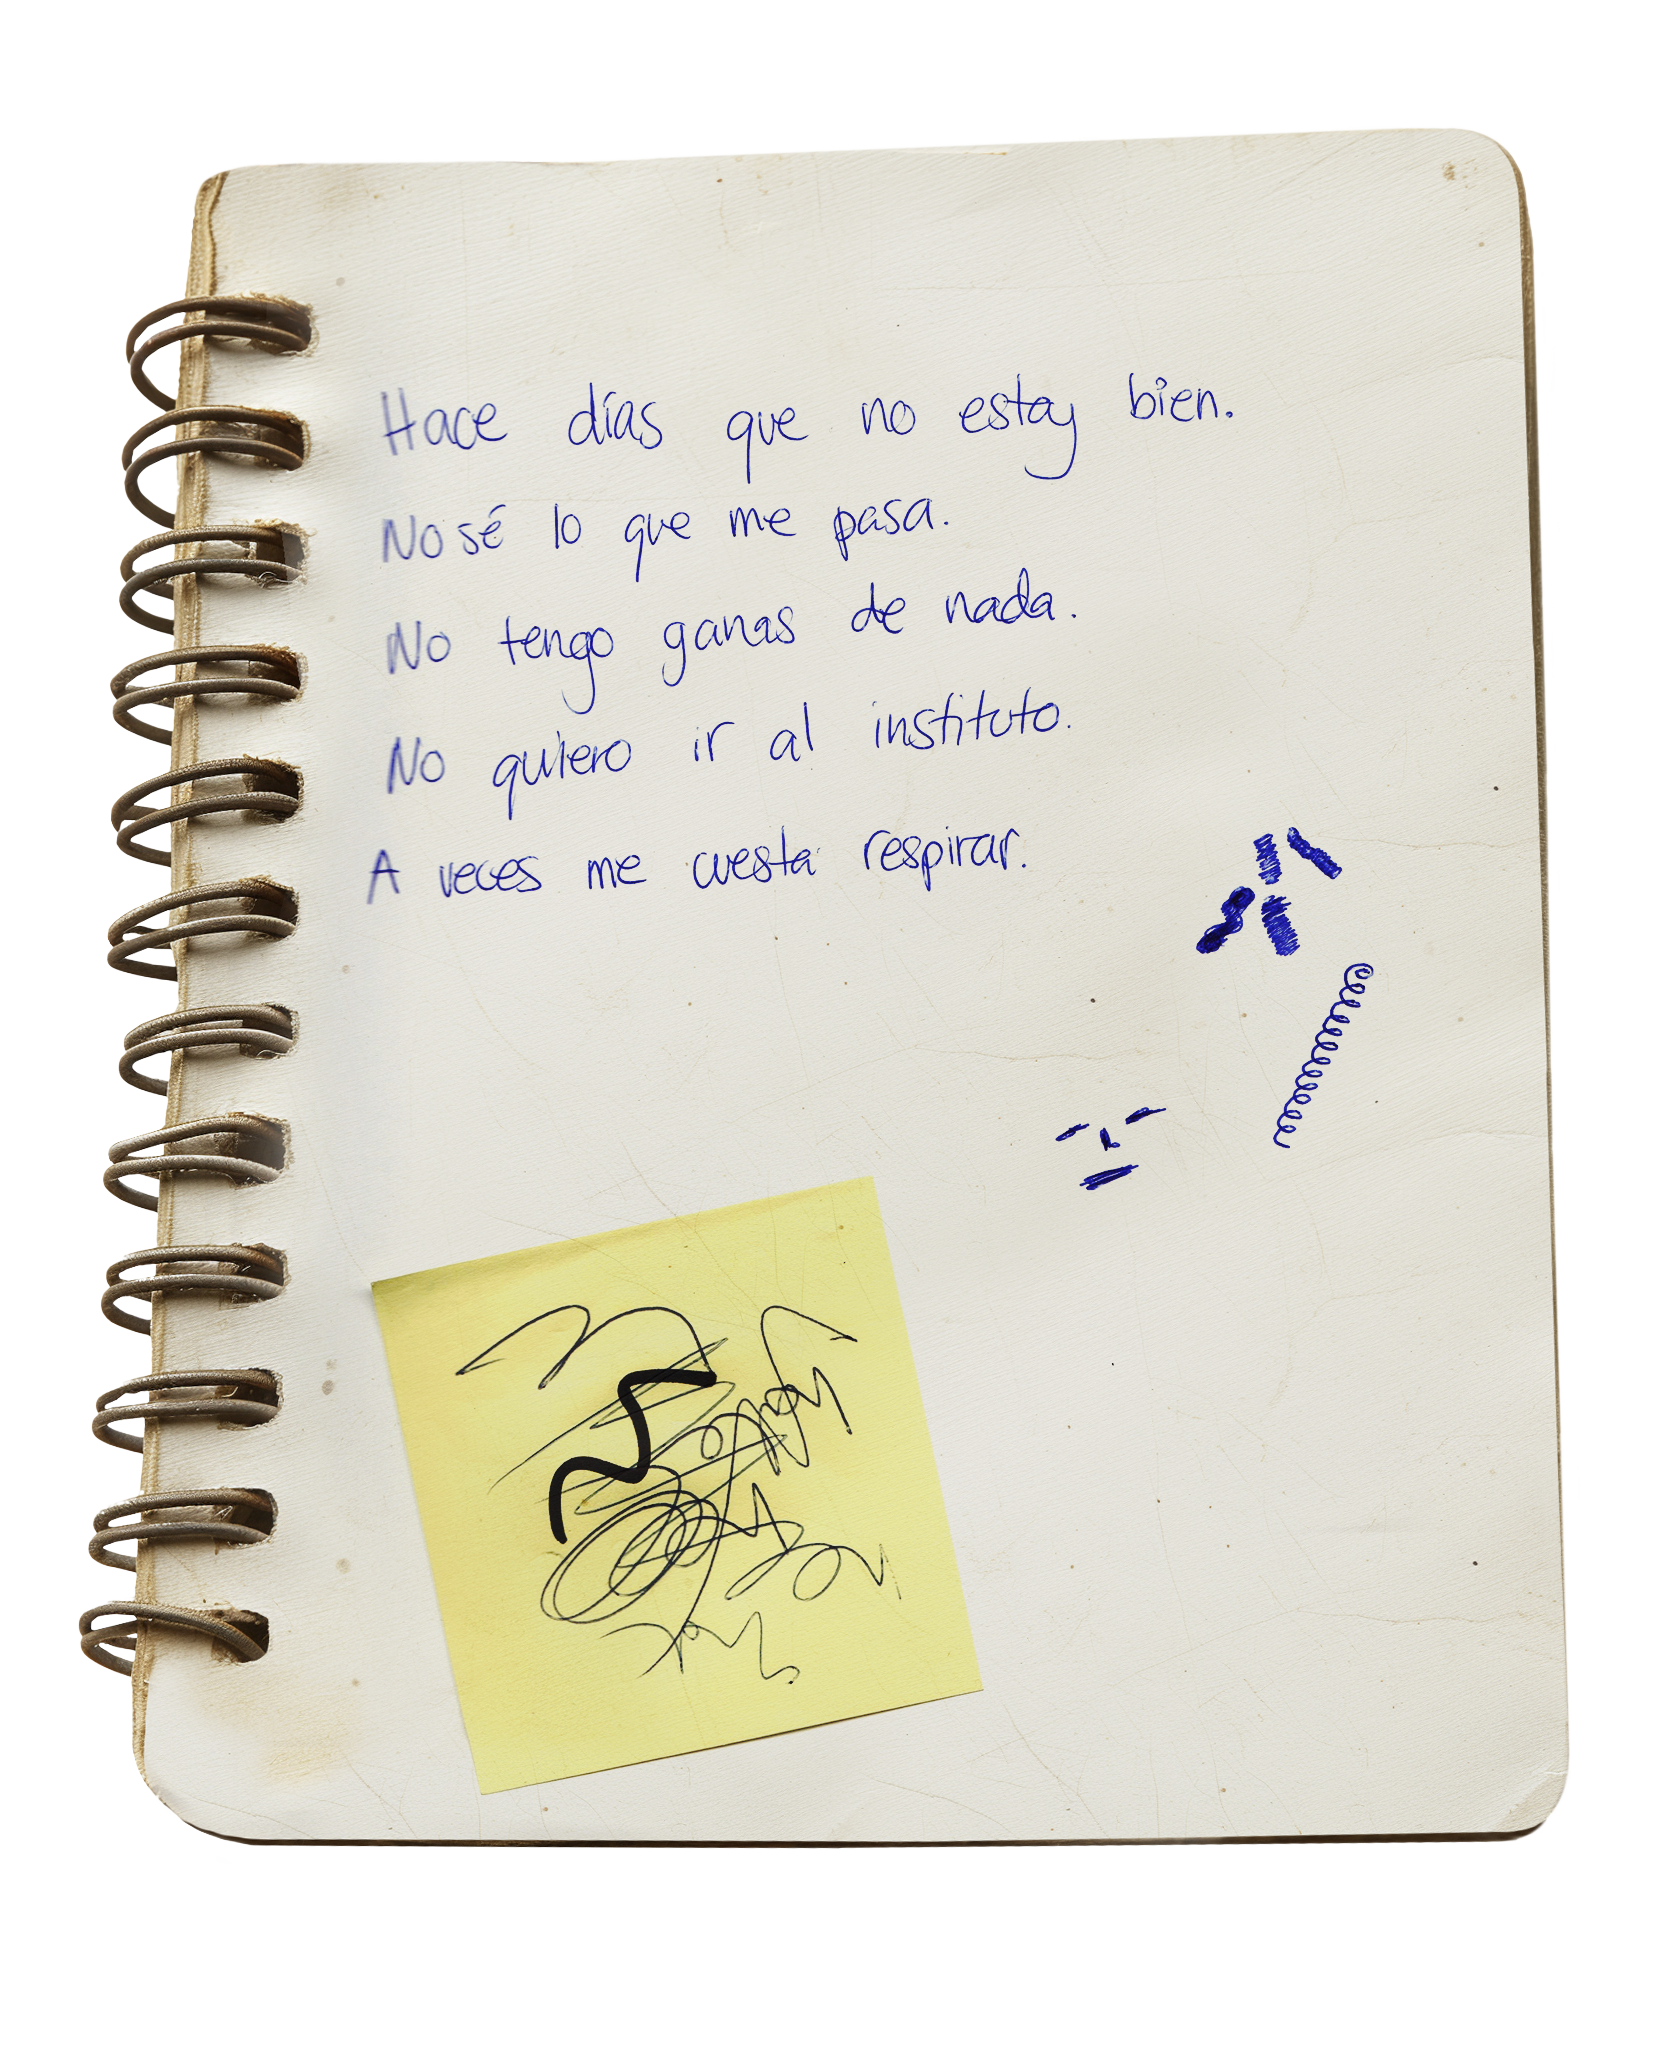 Hace días que no estoy bien.
No sé lo que me pasa.
No tengo ganas de nada.
No quiero ir al instituto.
A veces me cuesta respirar.